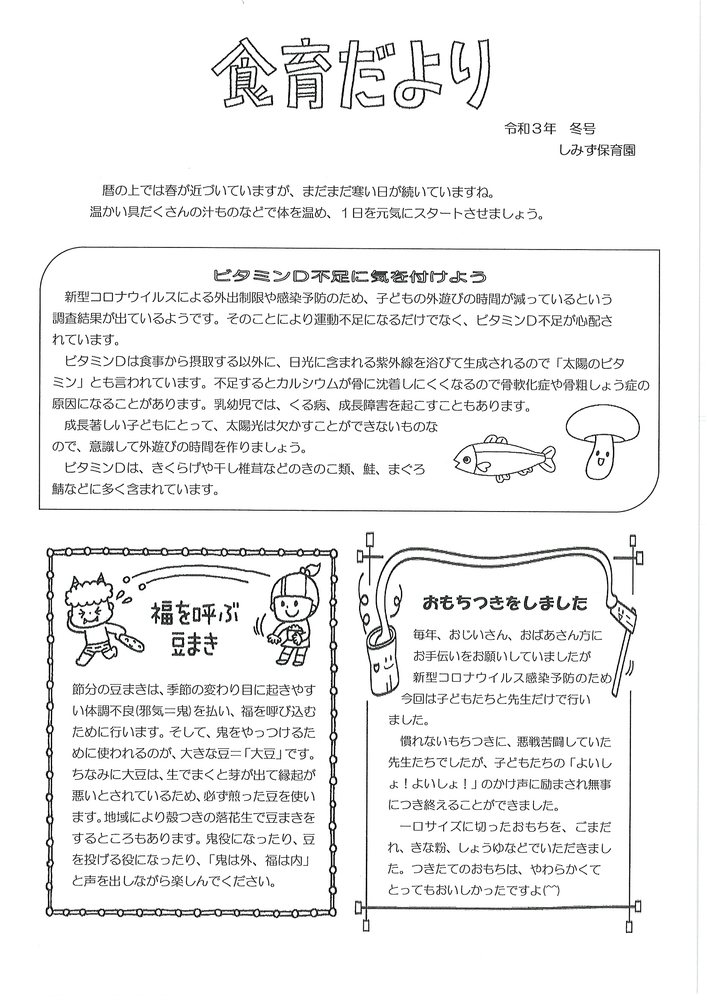 食育だより
令和３年　冬号
しみず保育園
暦の上では春が近づいていますが、まだまだ寒い日が続いていますね。
温かい具だくさんの汁ものなどで体を温め、１日を元気にスタートさせましょう。
ビタミンＤ不足に気を付けよう
新型コロナウイルスによる外出制限や感染予防のため、子どもの外遊びの時間が減っているという
調査結果が出ているようです。そのことにより運動不足になるだけでなく、ビタミンＤ不足が心配さ
れています。
ビタミンＤは食事から摂取する以外に、日光に含まれる紫外線を浴びて生成されるので「太陽のビタ
ミン」とも言われています。不足するとカルシウムが骨に沈着しにくくなるので骨軟化症や骨粗しょう症の
原因になることがあります。乳幼児では、くる病、成長障害を起こすこともあります。
成長著しい子どもにとって、太陽光は欠かすことができないものな
ので、意識して外遊びの時間を作りましょう。
ビタミンＤは、きくらげや干し椎茸などのきのこ類、鮭、まぐろ
鯖などに多く含まれています。
福を呼ぶ
豆まき
節分の豆まきは、季節の変わり目に起きやす
い体調不良(邪気＝鬼)を払い、福を呼び込む
ために行います。そして、鬼をやっつけるた
めに使われるのが、大きな豆＝「大豆」です。
ちなみに大豆は、生でまくと芽が出て縁起が
悪いとされているため、必ず煎った豆を使い
ます。地域により殻つきの落花生で豆まきを
するところもあります。鬼役になったり、豆
を投げる役になったり、「鬼は外、福は内」
と声を出しながら楽しんでください。
おもちつきをしました
毎年、おじいさん、おばあさん方に
お手伝いをお願いしていましたが
新型コロナウイルス感染予防のため
今回は子どもたちと先生だけで行い
ました。
慣れないもちつきに、悪戦苦闘していた
先生たちでしたが、子どもたちの「よいし
ょ！よいしょ！」のかけ声に励まされ無事
につき終えることができました。
一口サイズに切ったおもちを、ごまだ
れ、きな粉、しょうゆなどでいただきまし
た。つきたてのおもちは、やわらかくて
とってもおいしかったですよ(^^)